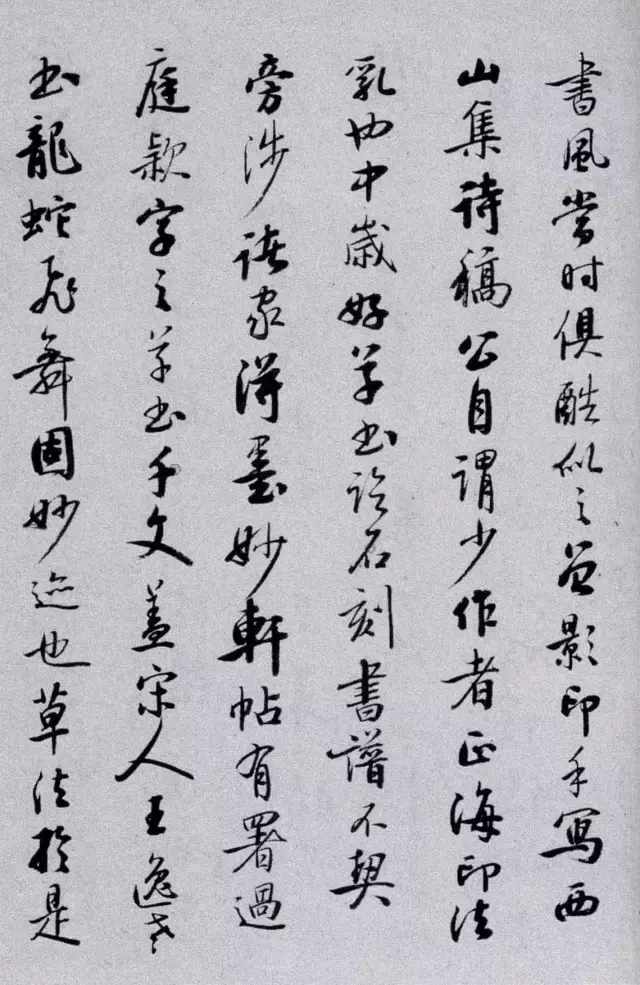 書風當时俱酷似之曾影印手寫西
山集诗稿公自謂少作者正海印法
乳也中歲好草书谂石刻書譜不契
旁涉诸家得墨妙軒帖有署過
庭款字之草书千文蓋宋人王逸老
书龍蛇飛舞固妙迹也草法於是